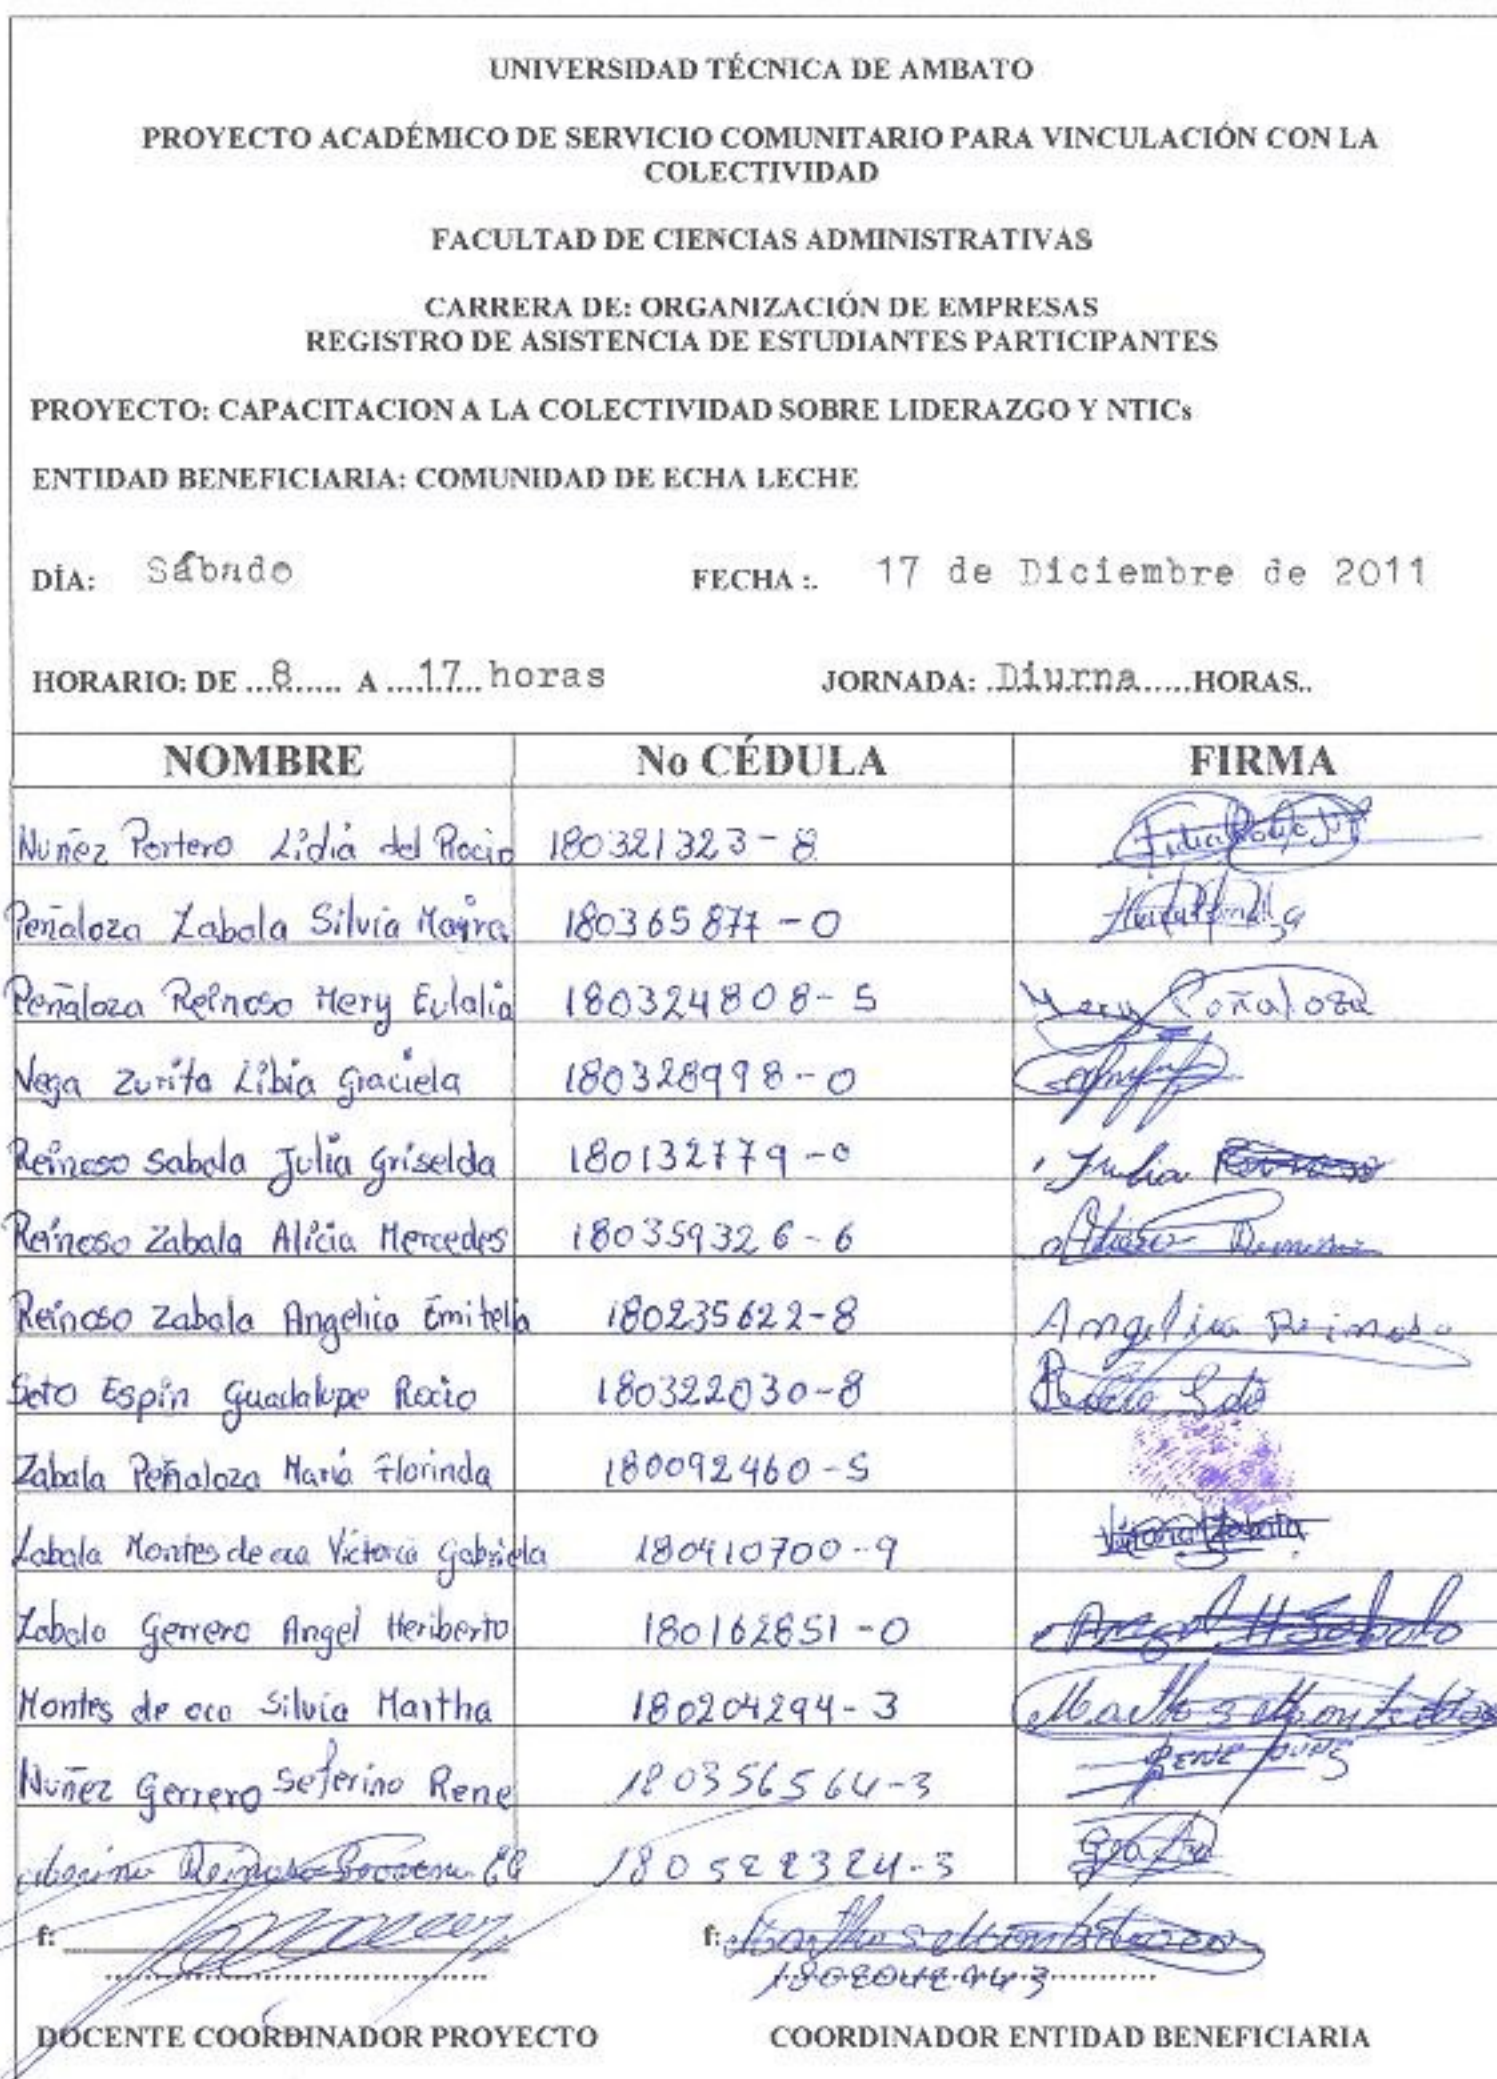 UNIVERSIDAD TÉCNICA DE AMBATO
PROYECTO ACADÉMICO DE SERVICIO COMUNITARIO PARA VINCULACIÓN CON LA
COLECTIVIDAD
FACULTAD DE CIENCIAS ADMINISTRATIVAS
CARRERA DE: ORGANIZACIÓN DE EMPRESAS
REGISTRO DE ASISTENCIA DE ESTUDIANTES PARTICIPANTES
PROYECTO: CAPACITACION A LA COLECTIVIDAD SOBRE LIDERAZGO Y NTICs
ENTIDAD BENEFICIARIA: COMUNIDAD DE ECHA LECHE
DÍA: Sábado FECHA :. 17 de Diciembre de 2011
HORARIO: DE ...8..... A ....17... horas JORNADA: .Diurna.....HORAS..
NOMBRE No CÉDULA FIRMA
Nuñez Portero Lidia del Rocio 180321323-8
Peñaloza Zabala Silvia Mayra 180365877-0
Peñaloza Reinoso Mery Eulalia 180324808-5 Mery Peñaloza
Vega Zurita Libia Graciela 180328998-0
Reinoso Sabala Julia Griselda 180132779-0 Julia Reinoso
Reinoso Zabala Alicia Mercedes 180359326-6
Reinoso Zabala Angelica Emitelia 180235622-8 Angelica Reinoso
Soto Espin Guadalupe Rocio 180322030-8 Soto
Zabala Peñaloza Maria Florinda 180092460-5
Zabala Montes de oca Victoria Gabriela 180410700-9 Victoria Zabala
Zabala Gerrero Angel Heriberto 180162851-0 Angel H Sabala
Montes de oca Silvia Martha 180204294-3
Nuñez Gerrero Seferino Rene 180356564-3 Rene Nuñez
Reinoso 180522324-3
f: f:
1802042943
DOCENTE COORDINADOR PROYECTO COORDINADOR ENTIDAD BENEFICIARIA